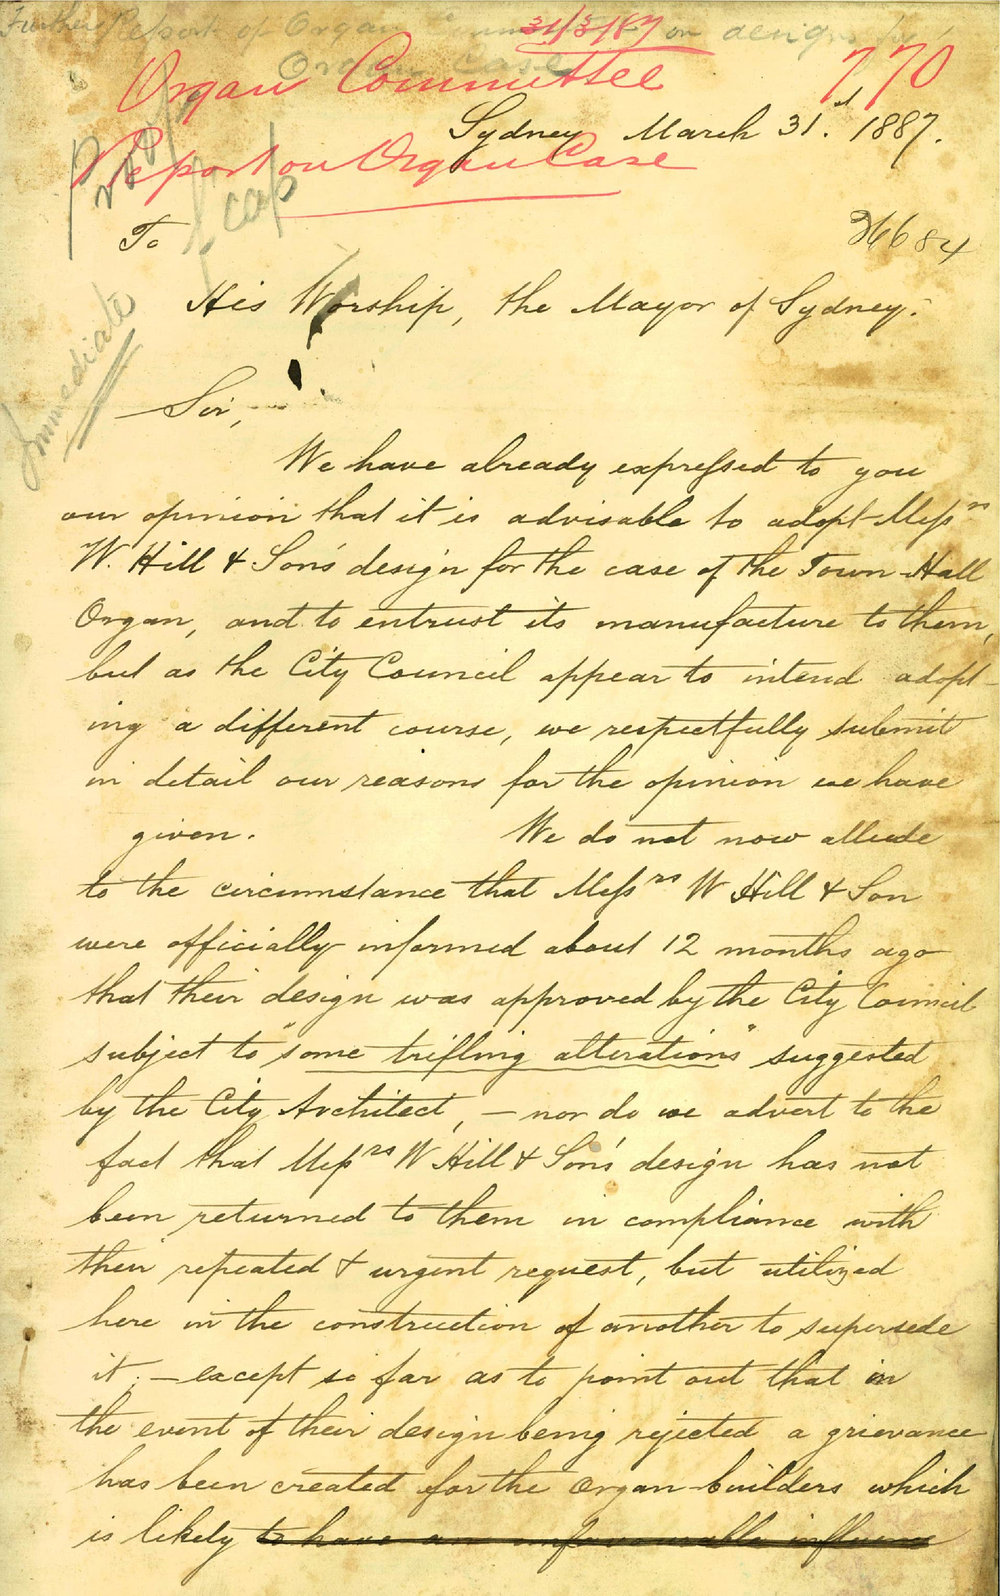 Further Report of Organ Committee on designs for
Organ Case
31/3/87
Organ Committee
770
Sydney March 31st. 1887.
Report on Organ Case
cap
26684
To
His Worship, the Mayor of Sydney.
Immediate
Sir,
We have already expressed to you
our opinion that it is advisable to adopt Messrs
W. Hill & Son's design for the case of the Town Hall
Organ, and to entrust its manufacture to them,
but as the City Council appear to intend adopt-
ing a different course, we respectfully submit
in detail our reasons for the opinion we have
given. We do not now allude
to the circumstance that Messrs W Hill & Son
were officially informed about 12 months ago
that their design was approved by the City Council
subject to "some trifling alterations" suggested
by the City Architect, — nor do we advert to the
fact that Messrs W Hill & Son's design has not
been returned to them in compliance with
their repeated & urgent request, but utilized
here in the construction of another to supersede
it; — except so far as to point out that in
the event of their design being rejected a grievance
has been created for the Organ-builders which
is likely to have an unfavourable influence